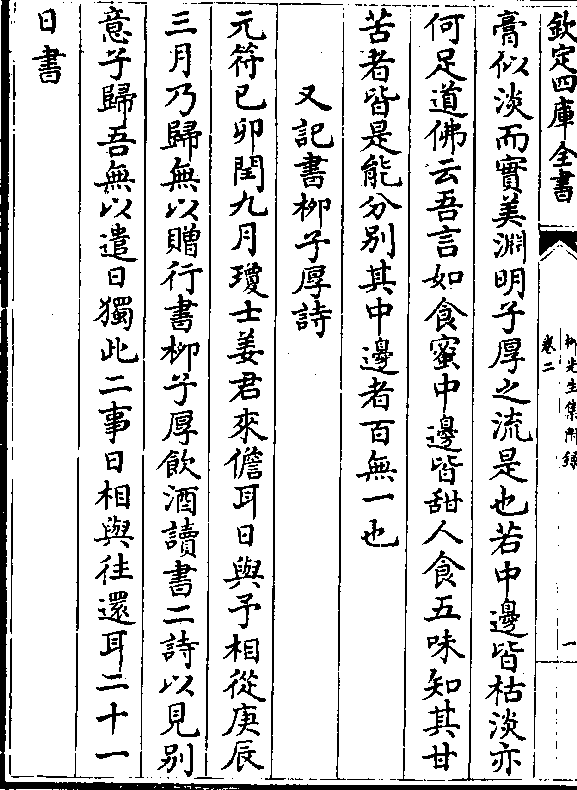 欽定四庫全書
柳先生集附錄
卷二
一
膏似淡而實美淵明子厚之流是也若中邊皆枯淡亦
何足道佛云吾言如食蜜中邊皆甜人食五味知其甘
苦者皆是能分別其中邊者百無一也
又記書柳子厚詩
元符已卯閏九月瓊士姜君來儋耳日與予相從庚辰
三月乃歸無以贈行書柳子厚飲酒讀書二詩以見別
意子歸吾無以遣日獨此二事日相與往還耳二十一
日書